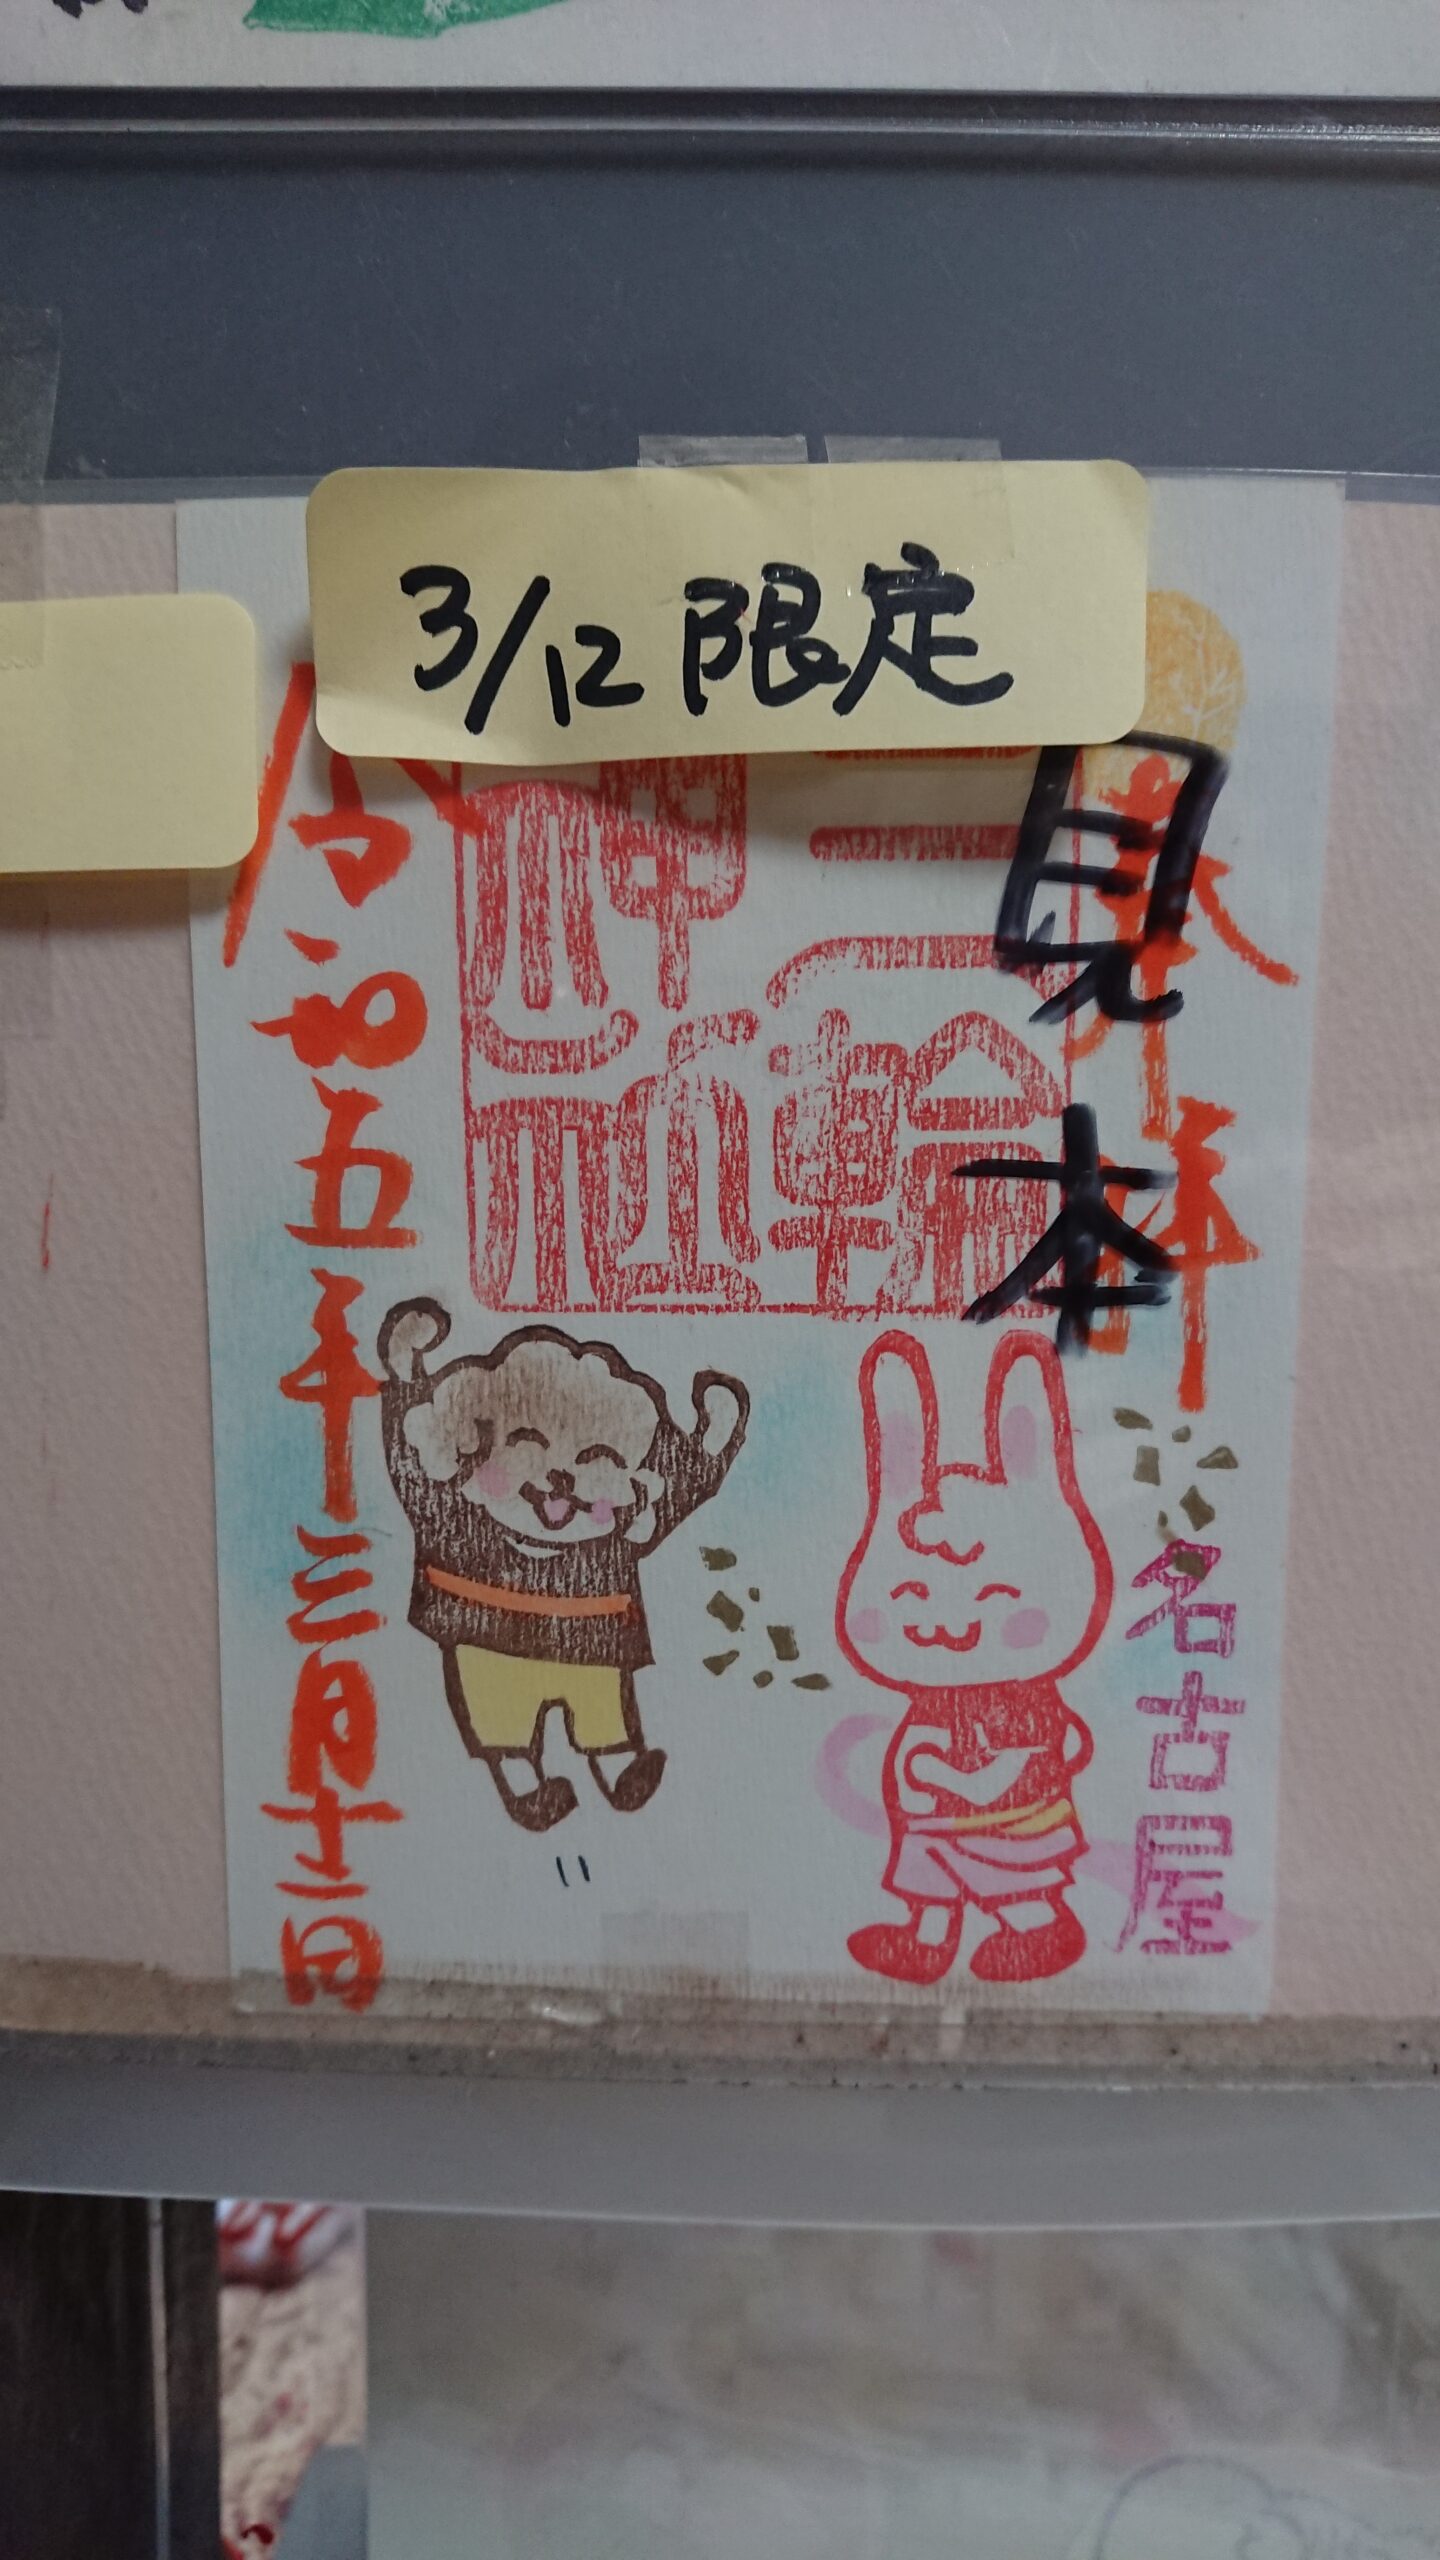 3/12 限定
見本
奉拝
名古屋
三輪
神社
令和五年三月十二日